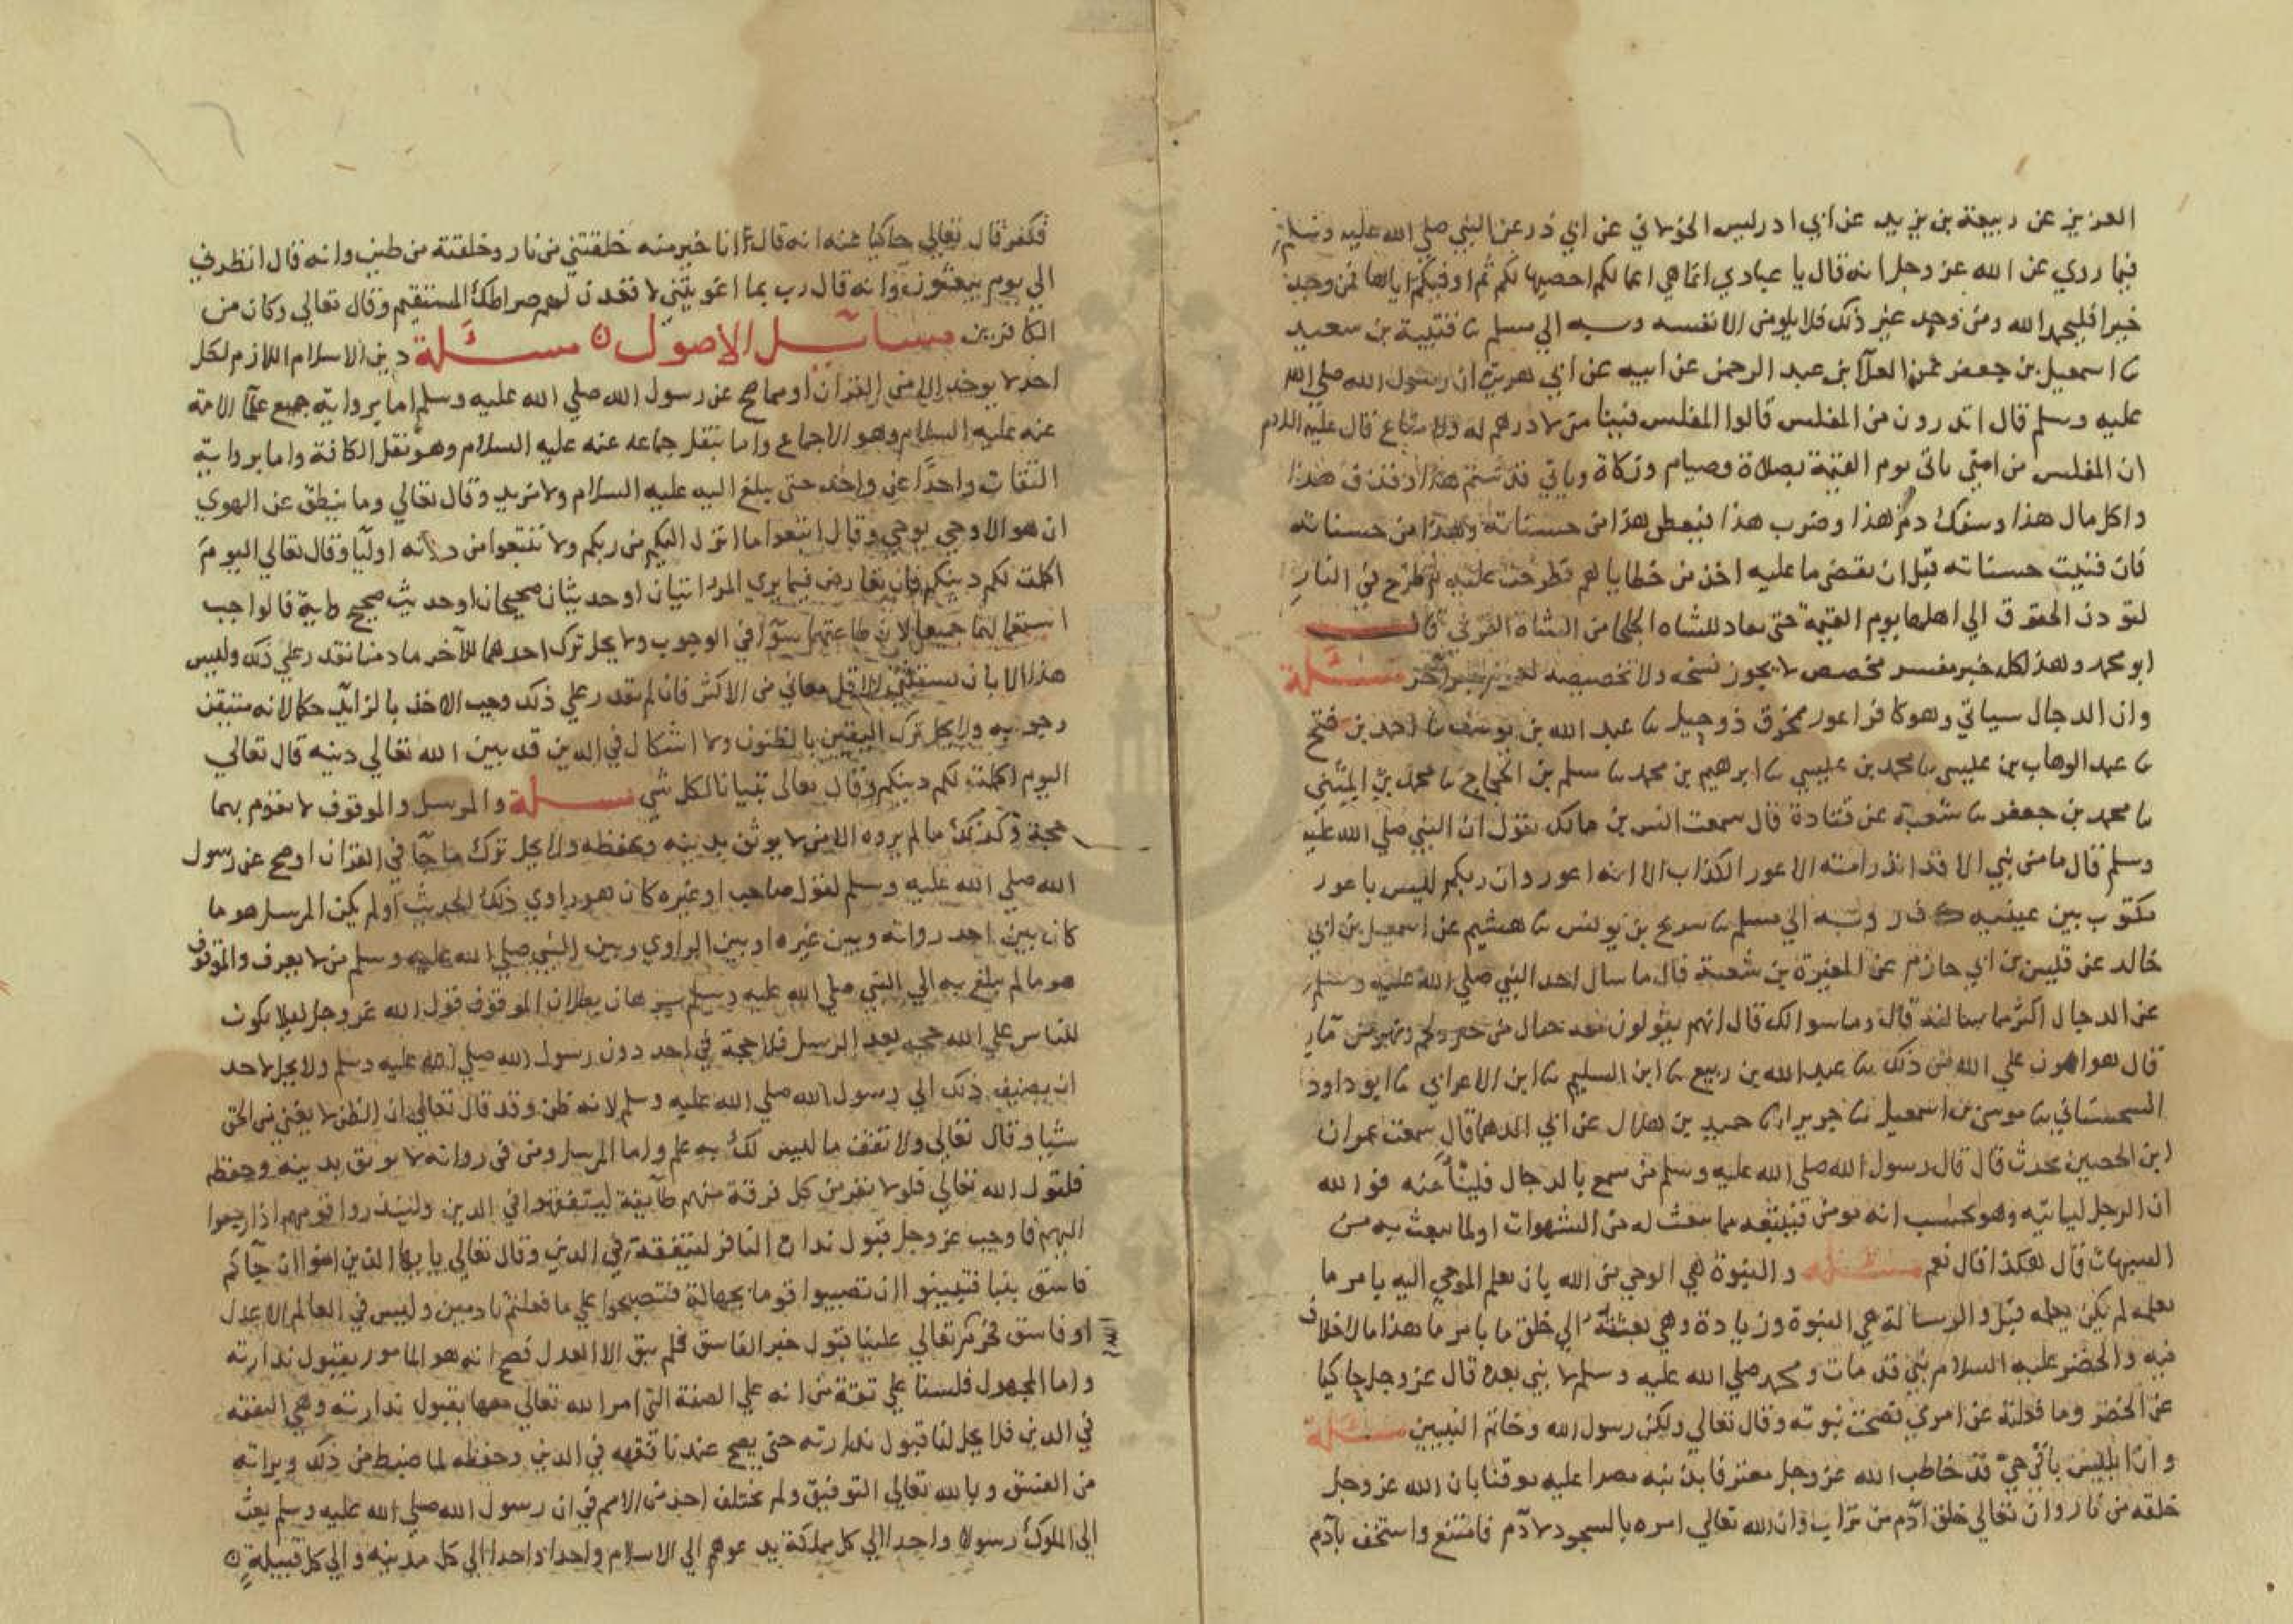 العزيز عن ربيعة بن يزيد عن ابي ادريس الخولاني عن ابي ذر عن النبي صلي الله عليه وسلم
فيما روي عن الله عز وجل انه قال يا عبادي انما هي اعمالكم احصيها لكم ثم اوفيكم اياها فمن وجد
خيرا فليحمد الله ومن وجد غير ذلك فلا يلومن الا نفسه وبه الي مسلم نا قتيبة بن سعيد
نا اسمعيل بن جعفر عن العلا بن عبد الرحمن عن ابيه عن ابي هريرة ان رسول الله صلي الله
عليه وسلم قال اتدرون من المفلس قالوا المفلس فينا من لا درهم له ولا متاع قال عليه السلام
ان المفلس من امتي ياتي يوم القيمة بصلاة وصيام وزكاة وياتي قد شتم هذا وقذف هذا
واكل مال هذا وسفك دم هذا وضرب هذا فيعطي هذا من حسناته وهذا من حسناته
فان فنيت حسناته قبل ان يقضي ما عليه اخذ من خطاياهم فطرحت عليه ثم طرح في النار
لتودن الحقوق الي اهلها يوم القيمة حتي يقاد للشاه الجلحا من الشاة القرني قال
ابو محمد وهذا كل خبر مفسر مخصص لا يجوز نسخه ولا تخصيصه لخبر آخر مسئلة
وان الدجال سياتي وهو كافر اعور ممخرق ذو حيل نا عبد الله بن يوسف نا احمد بن فتح
نا عبد الوهاب بن عليسي نا محمد بن عليسي نا ابرهيم بن محمد نا مسلم بن الحجاج نا محمد بن المثني
نا محمد بن جعفر نا شعبة عن قتادة قال سمعت انس بن مالك يقول ان النبي صلي الله عليه
وسلم قال ما من نبي الا قد انذر امته الاعور الكذاب الا انه اعور وان ربكم ليس باعور
مكتوب بين عينيه ك ف ر وبه الي مسلم نا سريج بن يونس نا هشيم عن اسمعيل بن ابي
خالد عن قيس بن ابي حازم عن المغيرة بن شعبة قال ما سال احد النبي صلي الله عليه وسلم
عن الدجال اكثر مما سالته قال وما سوالك قال انهم يقولون معه جبال من خبز ولحم ونهر من مآء
قال هو اهون علي الله من ذلك نا عبد الله بن ربيع نا ابن السليم نا ابن الاعرابي نا ابو داود
السجستاني نا موسي بن اسمعيل نا جرير نا حميد بن هلال عن ابي الدهما قال سمعت عمران
ابن الحصين يحدث قال قال رسول الله صلي الله عليه وسلم من سمع بالدجال فلينأ عنه فوالله
ان الرجل لياتيه وهو يحسب انه مومن فيتبعه مما يبعث له من الشبهات او لما يبعث به من
الشبهات قال هكذا قال نعم مسئلة والنبوة هي الوحي من الله بان يعلم الموحي اليه بامر ما
يعلمه لم يكن يعلمه قبل والرسالة هي النبوة وزيادة وهي بعثته الي خلق ما بامر ما هذا ما لا خلاف
فيه والخضر عليه السلام نبي قد مات ومحمد صلي الله عليه وسلم لا نبي بعده قال عز وجل حاكيا
عن الخضر وما فعلته عن امري فصحت نبوته وقال تعالي ولكن رسول الله وخاتم النبيين مسئلة
وان ابليس باقي حي قد خاطب الله عز وجل معترفا بذنبه مصرا عليه موقنا بان الله عز وجل
خلقه من نار وان تعالي خلق آدم من تراب وان الله تعالي امره بالسجود لآدم فامتنع واستخف بآدم
فكفر قال تعالي حاكيا عنه انه قال انا خير منه خلقتني من نار وخلقته من طين وانه قال انظرني
الي يوم يبعثون وانه قال رب بما اغويتني لاقعدن لهم صراطك المستقيم وقال تعالي وكان من
الكافرين مسائل الاصول ۞ مسئلة دين الاسلام اللازم لكل
احد لا يوخذ الا من القرآن او مما صح عن رسول الله صلي الله عليه وسلم اما برواية جميع علمآ الامة
عنه عليه السلام وهو الاجماع واما بنقل جماعه عنه عليه السلام وهو نقل الكافة واما برواية
الثقات واحدا عن واحد حتي يبلغ اليه عليه السلام ولا مزيد وقال تعالي وما ينطق عن الهوي
ان هو الا وحي يوحي وقال اتبعوا ما انزل اليكم من ربكم ولا تتبعوا من دونه اوليا وقال تعالي اليوم
اكملت لكم دينكم فان تعارض فيما يري المر ايتان او حديثان صحيحان او حديث صحيح واية فالواجب
استعمالهما جميعا لان طاعتهما سوآ في الوجوب ولا يحل ترك احدهما للآخر ما دمنا نقدر علي ذلك وليس
هذا الا بان نستثني الاقل معاني من الاكثر فان لم نقدر علي ذلك وجب الاخذ بالزايد حكما لانه متيقن
وجوبه ولا يحل ترك اليقين بالظنون ولا اشكال في الدين قد بين الله تعالي دينه قال تعالي
اليوم اكملت لكم دينكم وقال تعالي تبيانا لكل شي مسئلة والمرسل والموقوف لا تقوم بهما
حجة وكذلك ما لم يروه الا من لا يوثق بدينه وبحفظه ولا يحل ترك ما جآ في القرآن او صح عن رسول
الله صلي الله عليه وسلم لقول صاحب او غيره كان هو راوي ذلك الحديث او لم يكن المرسل هو ما
كان بين احد رواته وبين غيره او بين الراوي وبين النبي صلي الله عليه وسلم من لا يعرف والموقوف
هو ما لم يبلغ به الي النبي صلي الله عليه وسلم برهان بطلان الموقوف قول الله عز وجل ليلا يكون
للناس علي الله حجه بعد الرسل فلا حجة في احد دون رسول الله صلي الله عليه وسلم ولا يحل لاحد
ان يضيف ذلك الي رسول الله صلي الله عليه وسلم لانه ظن وقد قال تعالي ان الظن لا يغني من الحق
شيا وقال تعالي ولا تقف ما ليس لك به علم واما المرسل ومن في رواته لا يوثق بدينه وحفظه
فلقول الله تعالي فلولا نفر من كل فرقة منهم طآيفة ليتفقهوا في الدين ولينذروا قومهم اذا رجعوا
اليهم فاوجب عز وجل قبول نذارة النافر ليتفقه في الدين وقال تعالي يا يها الذين امنوا ان جآكم
فاسق بنبا فتبينوا ان تصيبوا قوما بجهالة فتصبحوا علي ما فعلتم نادمين وليس في العالم الا عدل
او فاسق فحرم تعالي علينا قبول خبر الفاسق فلم يبق الا العدل فصح انه هو المامور بقبول نذارته
واما المجهول فلسنا علي ثقة من انه علي الصفة التي امر الله تعالي معها بقبول نذارته وهي التفقه
في الدين فلا يحل لنا قبول نذارته حتي يصح عندنا تفقهه في الدين وحفظه لما ضبط من ذلك وبراته
من الفسق وبالله تعالي التوفيق ولم يختلف احد من الامم في ان رسول الله صلي الله عليه وسلم بعث
الي الملوك رسولا واحدا الي كل مملكة يدعوهم الي الاسلام واحدا واحدا الي كل مدينه والي كل قبيلة